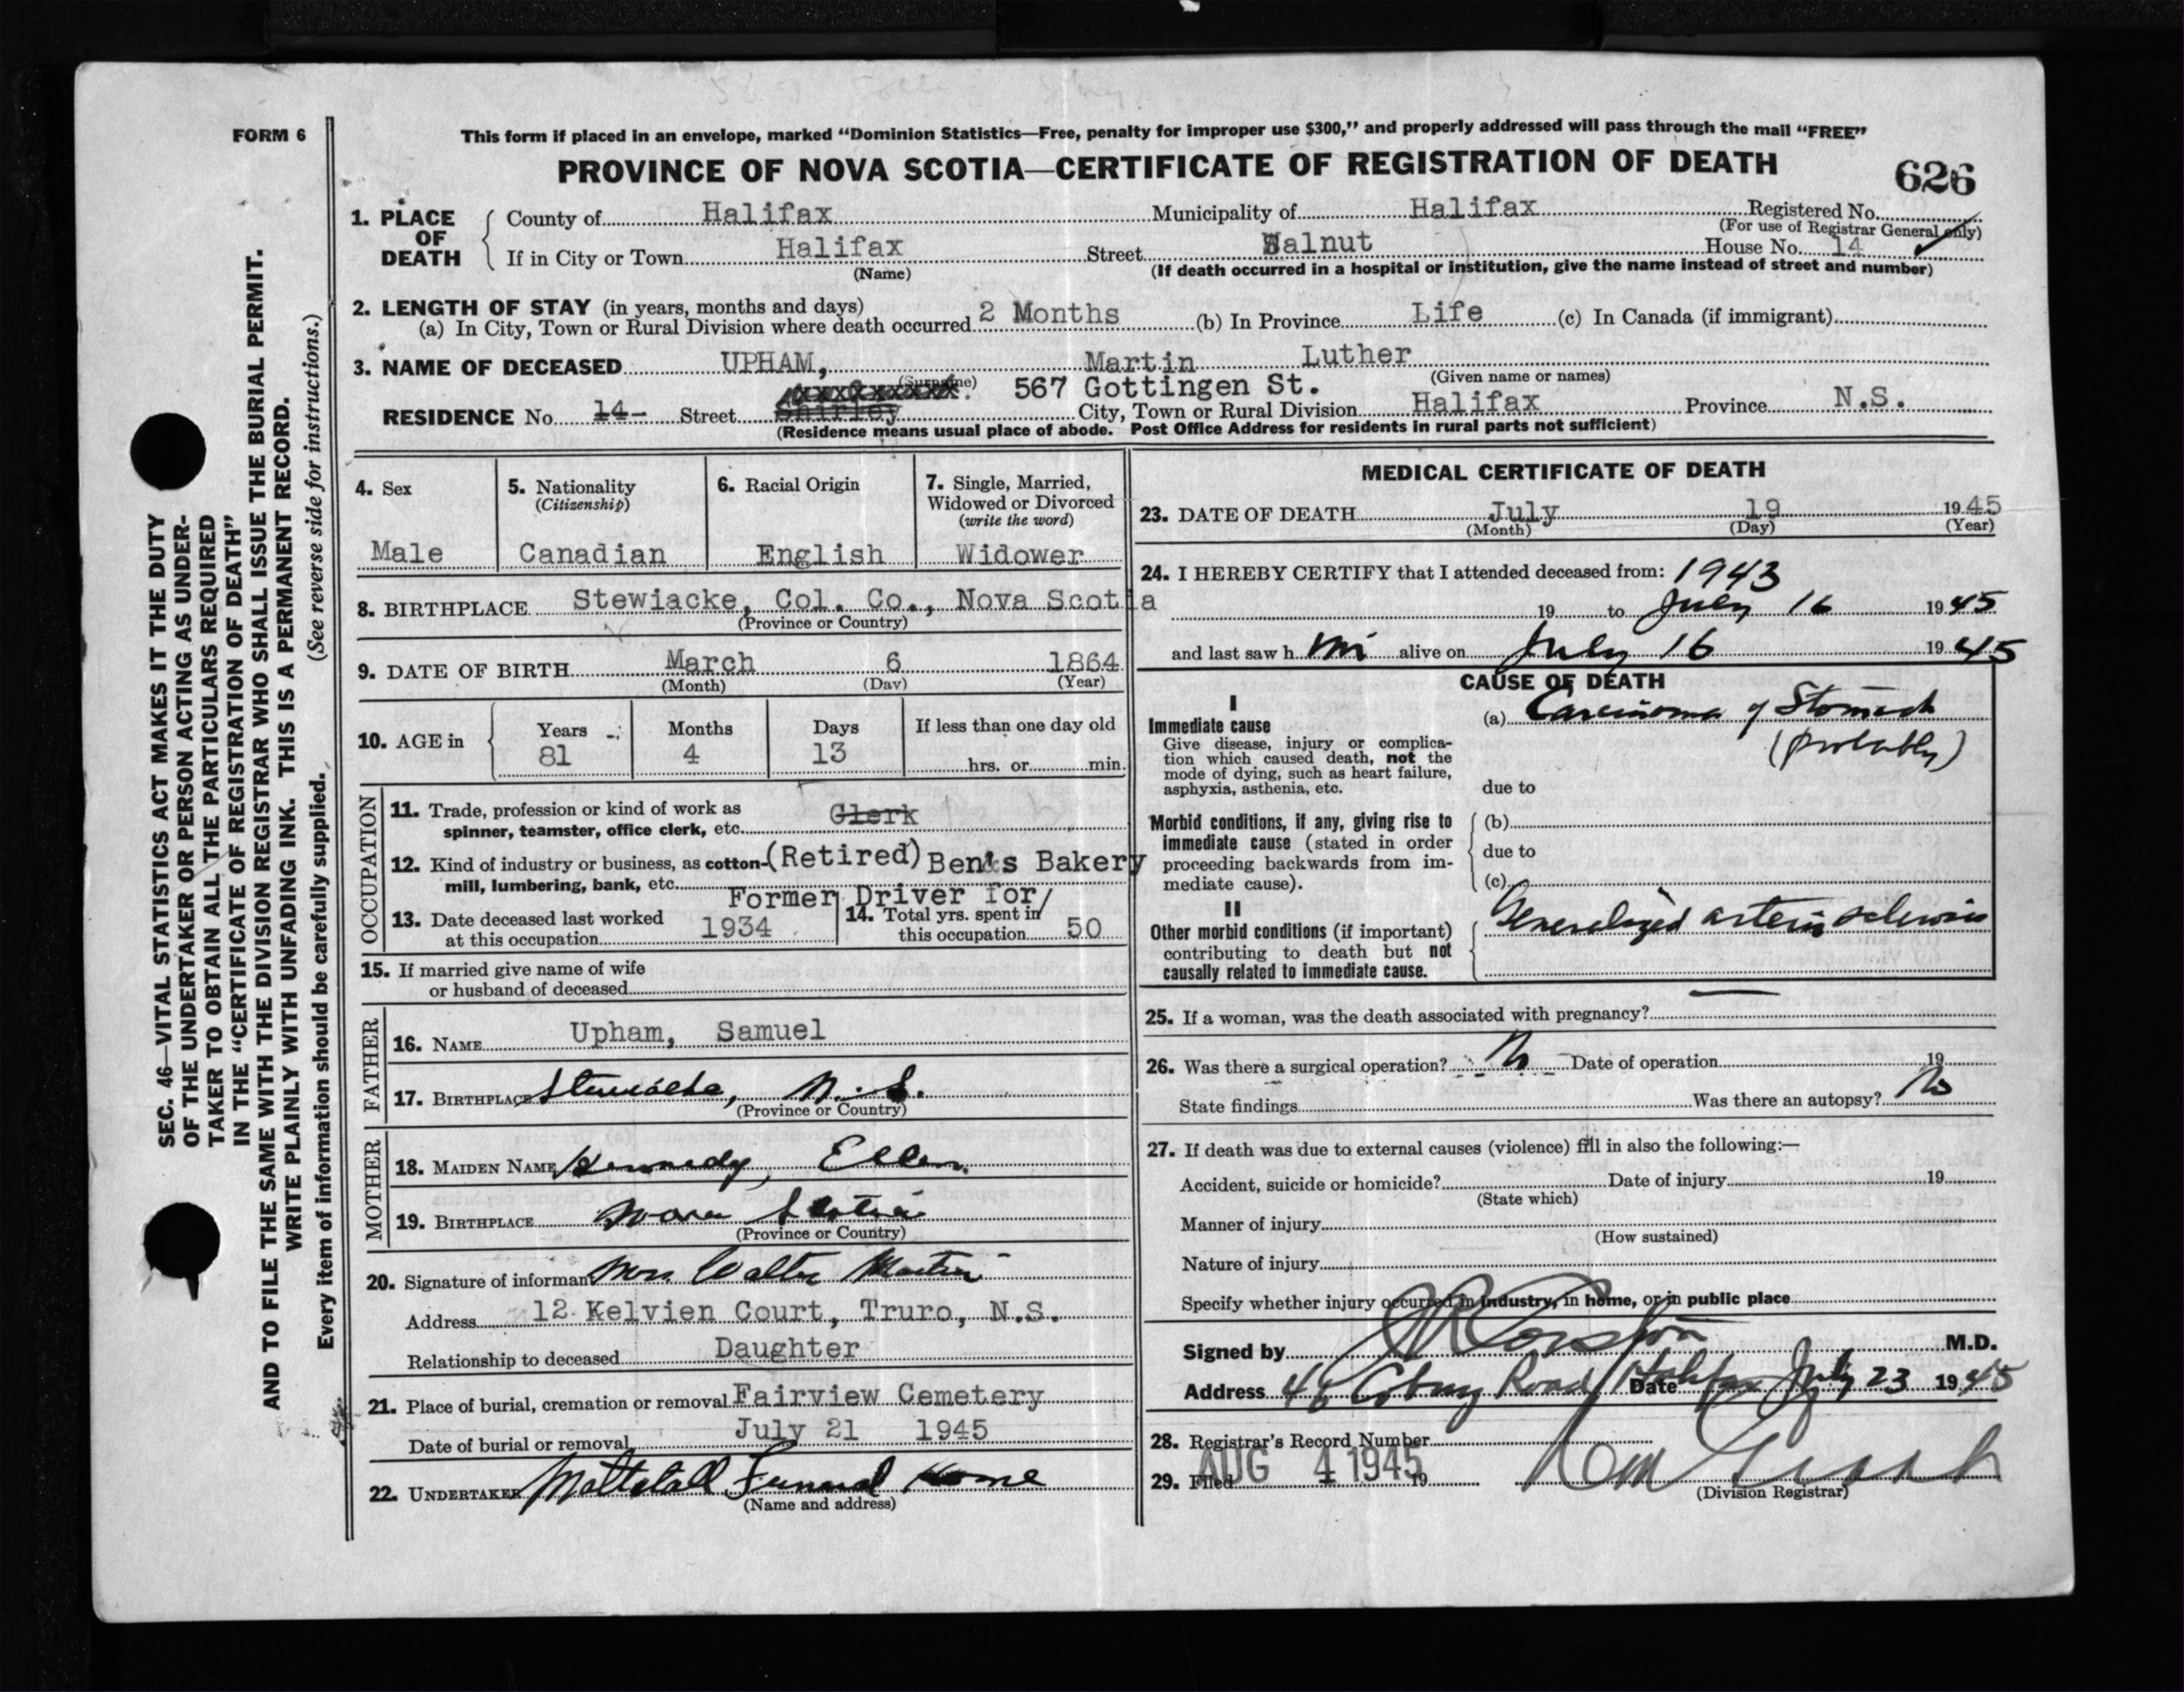 FORM 6
This form if placed in an envelope, marked “Dominion Statistics—Free, penalty for improper use $300,” and properly addressed will pass through the mail “FREE”
PROVINCE OF NOVA SCOTIA—CERTIFICATE OF REGISTRATION OF DEATH
626
1. PLACE OF DEATH
County of Halifax Municipality of Halifax Registered No.
(For use of Registrar General only)
If in City or Town Halifax Street Walnut House No. 14
(Name) (If death occurred in a hospital or institution, give the name instead of street and number)
2. LENGTH OF STAY (in years, months and days)
(a) In City, Town or Rural Division where death occurred 2 Months (b) In Province Life (c) In Canada (if immigrant)
3. NAME OF DECEASED UPHAM, Martin Luther
(Surname) (Given name or names)
567 Gottingen St.
RESIDENCE No. 14- Street Shirley City, Town or Rural Division Halifax Province N.S.
(Residence means usual place of abode. Post Office Address for residents in rural parts not sufficient)
4. Sex
Male
5. Nationality
(Citizenship)
Canadian
6. Racial Origin
English
7. Single, Married,
Widowed or Divorced
(write the word)
Widower
8. BIRTHPLACE Stewiacke, Col. Co., Nova Scotia
(Province or Country)
9. DATE OF BIRTH March 6 1864
(Month) (Day) (Year)
10. AGE in
Years Months Days If less than one day old
81 4 13 hrs. or min.
OCCUPATION
11. Trade, profession or kind of work as
spinner, teamster, office clerk, etc. Clerk
12. Kind of industry or business, as cotton- (Retired) Ben's Bakery
mill, lumbering, bank, etc. Former Driver for/
13. Date deceased last worked
at this occupation 1934
14. Total yrs. spent in
this occupation 50
15. If married give name of wife
or husband of deceased
FATHER
16. NAME Upham, Samuel
17. BIRTHPLACE Stewiacke, N.S.
(Province or Country)
MOTHER
18. MAIDEN NAME Kennedy, Ellen
19. BIRTHPLACE Nova Scotia
(Province or Country)
20. Signature of informant Mrs. Walter Martin
Address 12 Kelvien Court, Truro, N.S.
Relationship to deceased Daughter
21. Place of burial, cremation or removal Fairview Cemetery
Date of burial or removal July 21 1945
22. UNDERTAKER Mattatall Funeral Home
(Name and address)
MEDICAL CERTIFICATE OF DEATH
23. DATE OF DEATH July 19 1945
(Month) (Day) (Year)
24. I HEREBY CERTIFY that I attended deceased from: 1943
19 to July 16 1945
and last saw h im alive on July 16 1945
CAUSE OF DEATH
I
Immediate cause
Give disease, injury or complica-
tion which caused death, not the
mode of dying, such as heart failure,
asphyxia, asthenia, etc.
(a) Carcinoma of Stomach
(probably)
due to
Morbid conditions, if any, giving rise to
immediate cause (stated in order
proceeding backwards from im-
mediate cause).
(b)
due to
(c)
II
Other morbid conditions (if important)
contributing to death but not
causally related to immediate cause.
Generalized arterio sclerosis
25. If a woman, was the death associated with pregnancy? —
26. Was there a surgical operation? No Date of operation 19
State findings Was there an autopsy? No
27. If death was due to external causes (violence) fill in also the following:—
Accident, suicide or homicide? Date of injury 19
(State which)
Manner of injury
(How sustained)
Nature of injury
Specify whether injury occurred in industry, in home, or in public place
Signed by M.D.
Address 46 Coburg Road Halifax Date July 23 1945
28. Registrar's Record Number
29. Filed AUG 4 1945 19
(Division Registrar)
SEC. 46—VITAL STATISTICS ACT MAKES IT THE DUTY
OF THE UNDERTAKER OR PERSON ACTING AS UNDER-
TAKER TO OBTAIN ALL THE PARTICULARS REQUIRED
IN THE “CERTIFICATE OF REGISTRATION OF DEATH”
AND TO FILE THE SAME WITH THE DIVISION REGISTRAR WHO SHALL ISSUE THE BURIAL PERMIT.
WRITE PLAINLY WITH UNFADING INK. THIS IS A PERMANENT RECORD.
Every item of information should be carefully supplied. (See reverse side for instructions.)